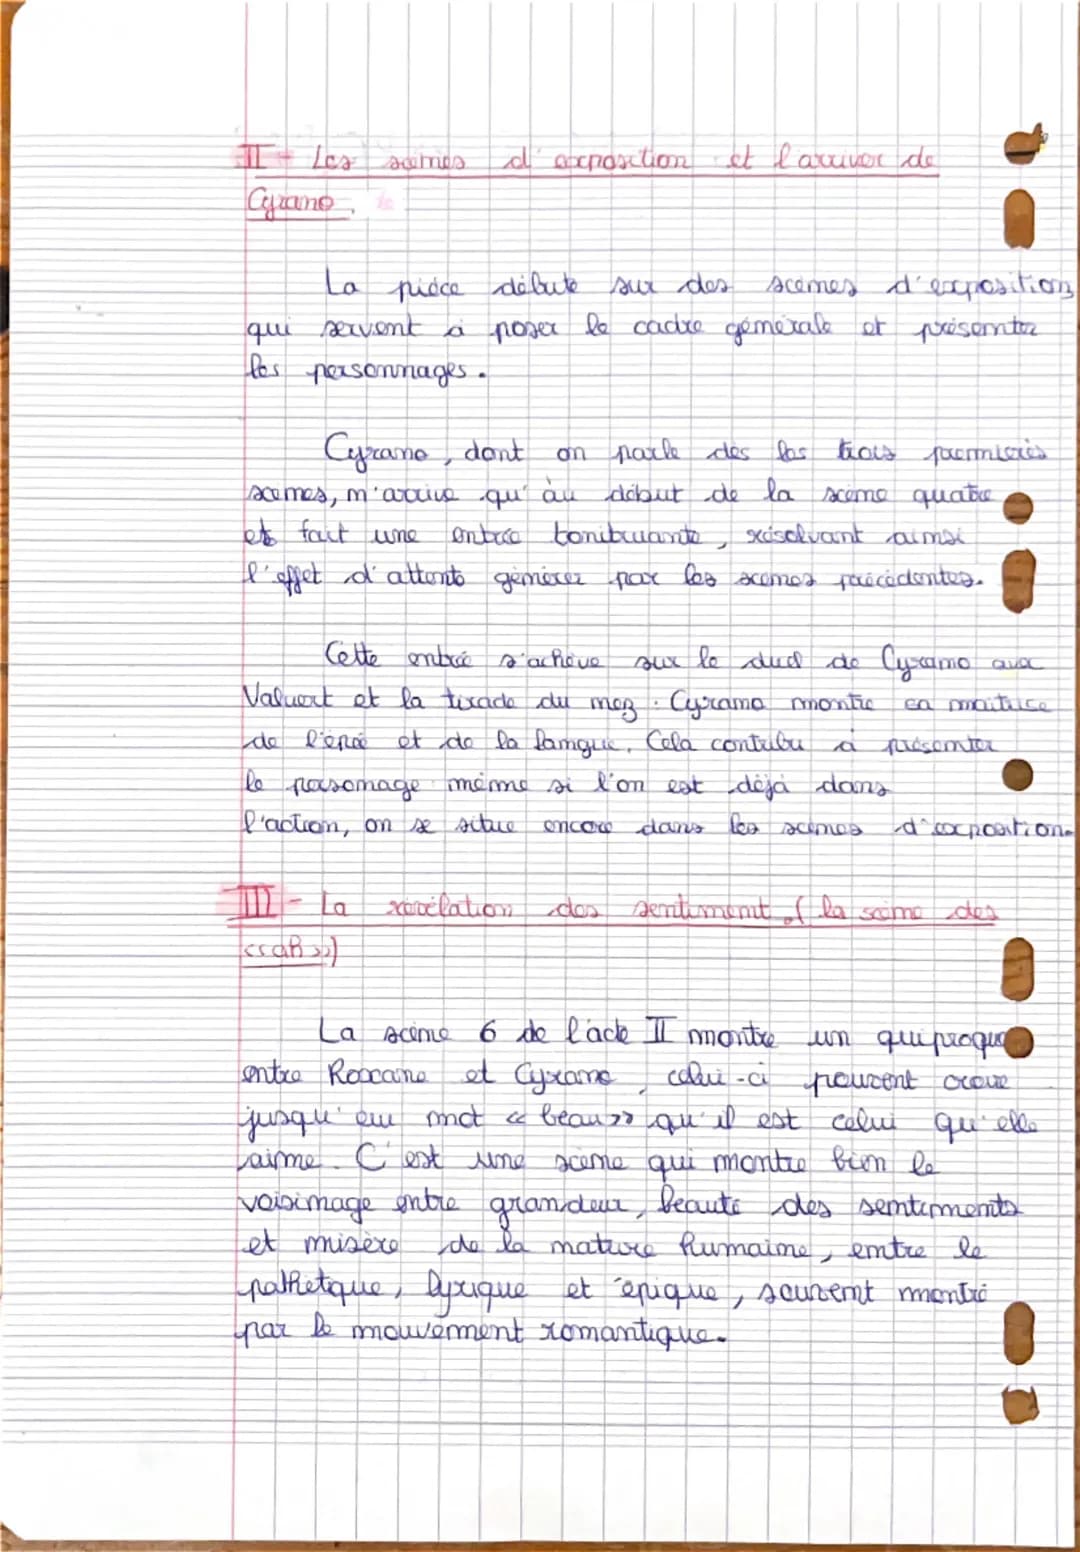 II - Les scènes d'exposition et l'arriver de
Cyrano.
La pièce débute sur des scènes d'exposition,
qui servent à poser le cadre générale et présenter
les personnages.
Cyrano, dont on parle dès les trois premières
scènes, n'arrive qu'au début de la scène quatre
et fait une entrée tonibuante, résolvant ainsi
l'effet d'attente générer par les scènes précédentes.
Cette entrée s'achève sur le duel de Cyrano avec
Valvert et la tirade du nez. Cyrano montre sa maitrise
de l'épée et de la langue. Cela contribu à présenter
le personnage même si l'on est déjà dans
l'action, on se situe encore dans les scènes d'exposition.
III - La révélation des sentiment. (la scène des
<<ah>>)
La scène 6 de l'acte II montre un quiproquo
entre Roxane et Cyrano, celui-ci pouvant croire
jusqu'au mot << beau>> qu'il est celui qu'elle
aime. C'est une scène qui montre bien le
voisinage entre grandeur, beauté des sentiments
et misère de la nature humaine, entre le
pathétique, lyrique et épique, souvent montré
par le mouvement romantique.